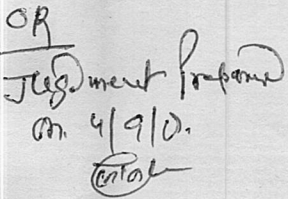 OR
Judgment Prepared
on 4/9/0.